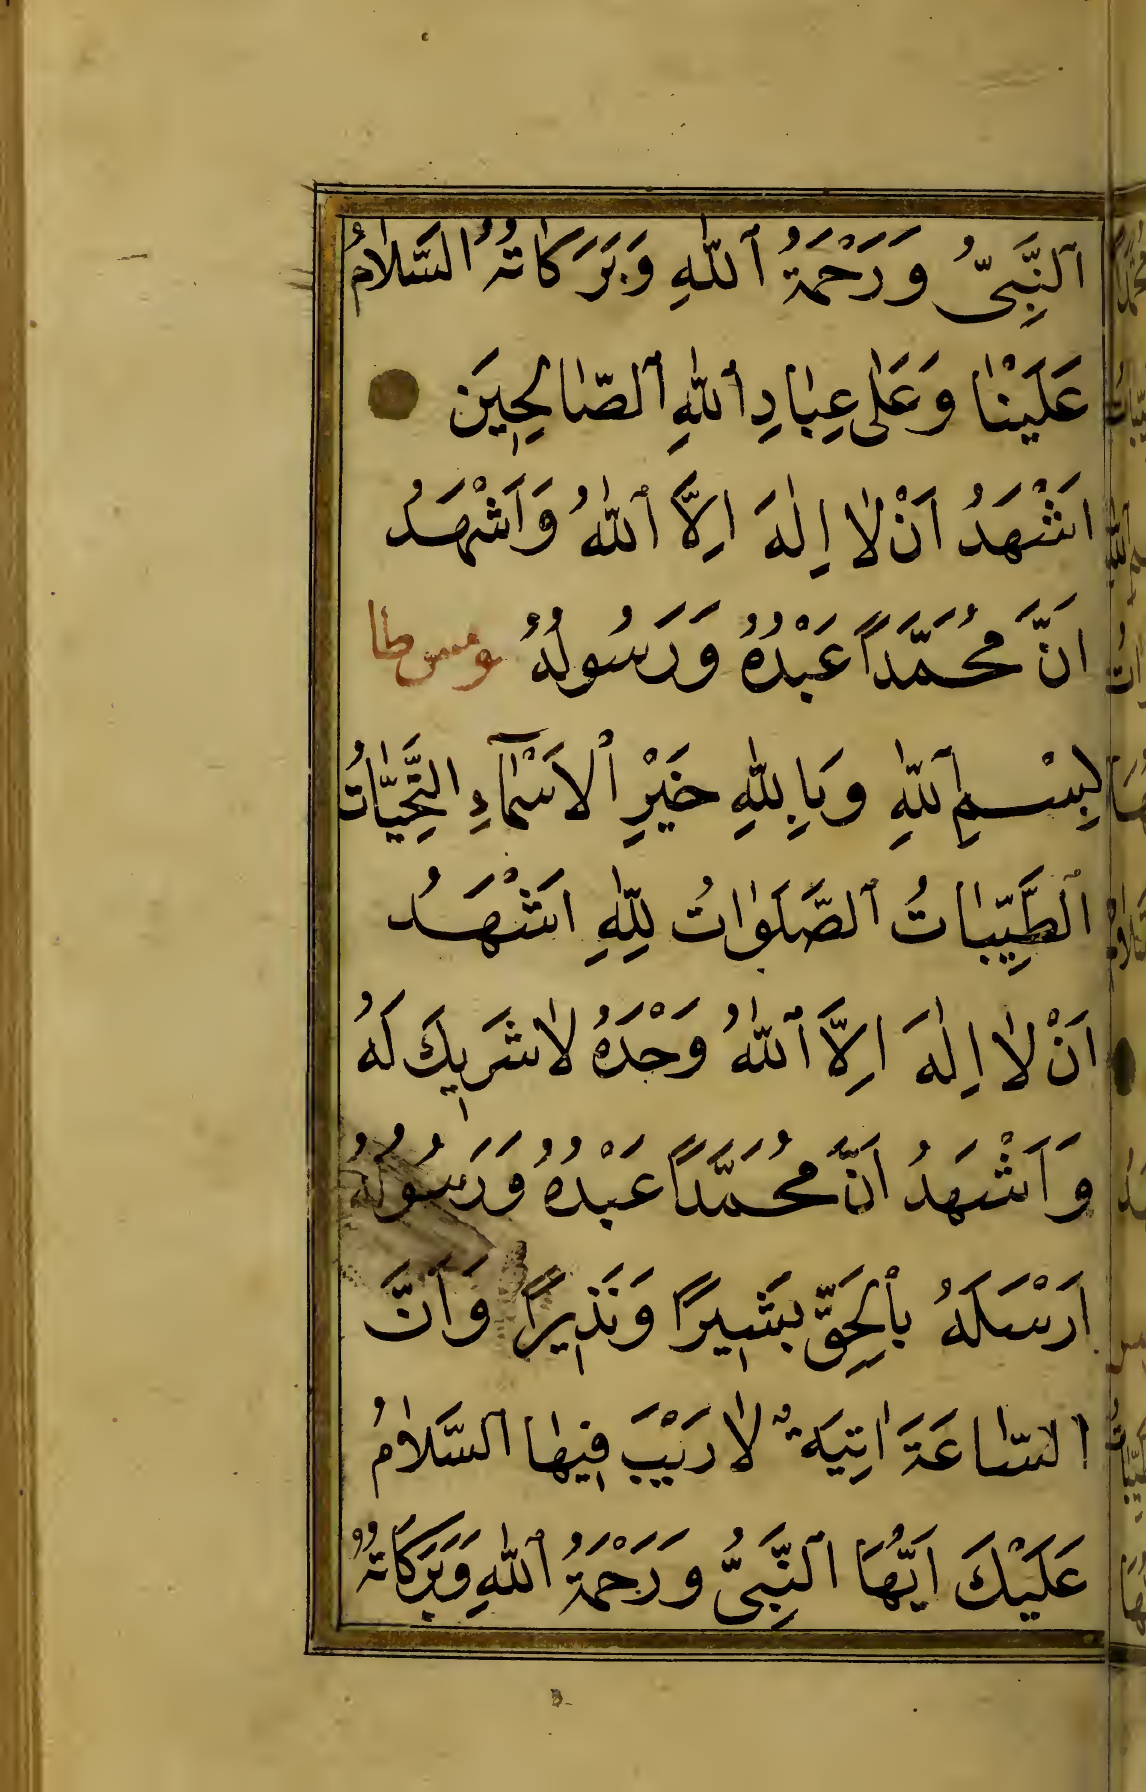 اَلنَّبِىُّ وَرَحْمَةُ اَللّٰهِ وَبَرَكَاتُهُ اَلسَّلٰامُ
عَلَيْنٰا وَعَلٰى عِبٰادِ اَللّٰهِ اَلصّٰالِحِينَ
اَشْهَدُ اَنْ لٰا اِلٰهَ اِلَّا اَللّٰهُ وَاَشْهَدُ
اَنَّ مُحَمَّدًا عَبْدُهُ وَرَسُولُهُ وَمس طا
بِسْمِ اَللّٰهِ وَبِاللّٰهِ خَيْرِ اْلاَسْمٰآءِ اَلتَّحِيّٰاتُ
اَلطَّيِّبٰاتُ اَلصَّلَوٰاتُ لِلّٰهِ اَشْهَدُ
اَنْ لٰا اِلٰهَ اِلَّا اَللّٰهُ وَحْدَهُ لٰا شَرِيكَ لَهُ
وَاَشْهَدُ اَنَّ مُحَمَّدًا عَبْدُهُ وَرَسُولُهُ
اَرْسَلَهُ بِاْلحَقِّ بَشِيرًا وَنَذِيرًا وَاَنَّ
السّٰاعَةَ اٰتِيَةٌ لٰا رَيْبَ فِيهٰا اَلسَّلٰامُ
عَلَيْكَ اَيُّهَا اَلنَّبِىُّ وَرَحْمَةُ اَللّٰهِ وَبَرَكَاتُهُ